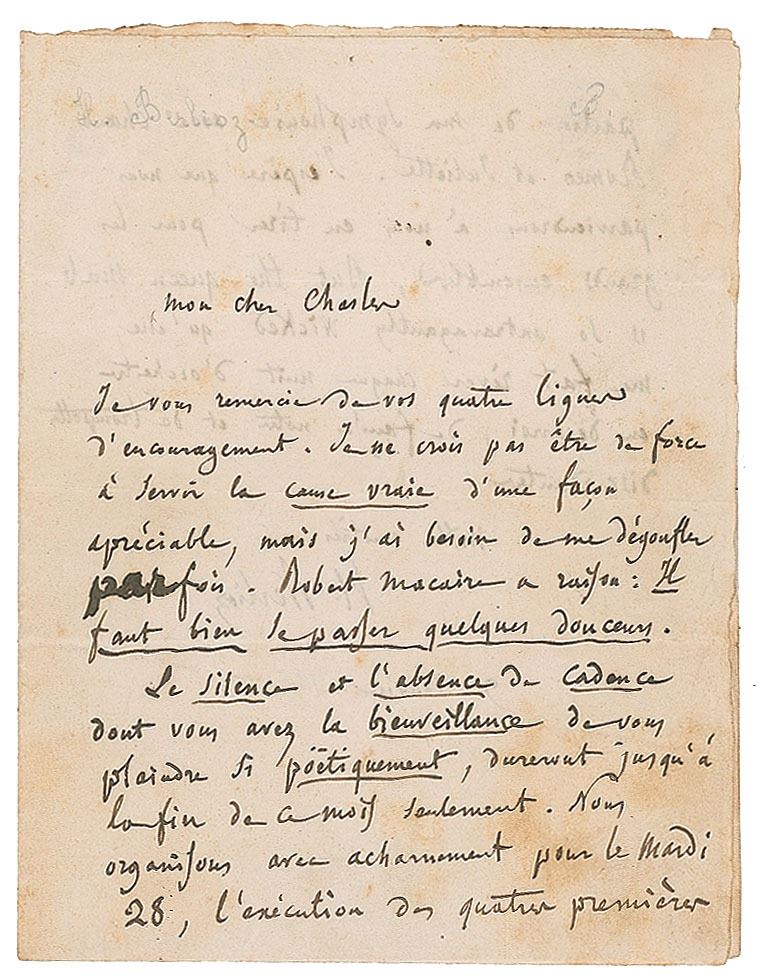 mon cher Chasles
Je vous remercie de vos quatre lignes
d'encouragement. Je ne crois pas être de force
à servir la cause vraie d'une façon
apréciable, mais j'ai besoin de me dégonfler
parfois. Robert Macaire a raison : Il
faut bien se passer quelques douceurs.
Le silence et l'absence de cadence
dont vous avez la bienveillance de vous
plaindre si pöétiquement, dureront jusqu'à
la fin de ce mois seulement. Nous
organisons avec acharnement pour le Mardi
28, l'exécution des quatres premières